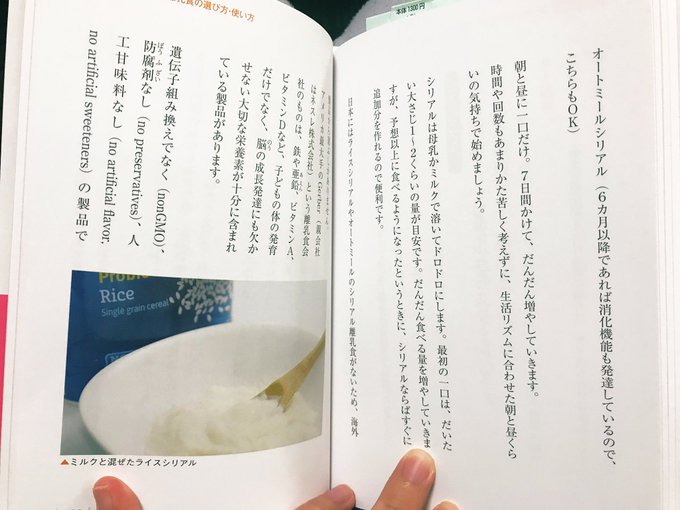 オートミールシリアル(6カ月以降であれば消化機能も発達しているので、
こちらもOK)
朝と昼に一口だけ。7日間かけて、だんだん増やしていきます。
時間や回数もあまりかた苦しく考えずに、生活リズムに合わせた朝と昼くら
いの気持ちで始めましょう。
シリアルは母乳かミルクで溶いてドロドロにします。最初の一口は、だいた
い大さじ1〜2くらいの量が目安です。だんだん食べる量を増やしていきま
すが、予想以上に食べるようになったというときに、シリアルならばすぐに
追加分を作れるので便利です。
日本にはライスシリアルやオートミールのシリアル離乳食がないため、海外
本体1300円
食の選び方・使い方
アメリカ最大手のGerber(親会社
はネスレ株式会社)という離乳食会
社のものは、鉄や亜鉛、ビタミンA、
ビタミンDなど、子どもの体の発育
だけでなく、脳の成長発達にも欠か
せない大切な栄養素が十分に含まれ
ている製品があります。
遺伝子組み換えでなく(nonGMO)、
防腐剤なし(no preservatives)、人
工甘味料なし(no artificial flavor,
no artificial sweeteners)の製品で
Rice
Single grain cereal
▲ミルクと混ぜたライスシリアル